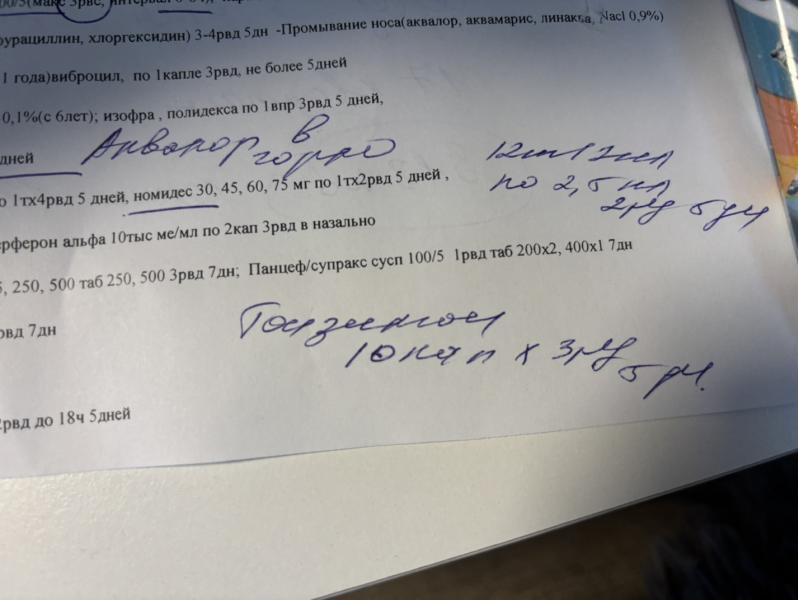 00/5(макс 3рвс, интервал
фурациллин, хлоргексидин) 3-4рвд 5дн -Промывание носа(аквалор, аквамарис, линаква, Nacl 0,9%)
1 года)виброцил, по 1капле 3рвд, не более 5дней
0,1%(с 6лет); изофра , полидекса по 1впр 3рвд 5 дней,
дней Аквалор в горло
по 1тх4рвд 5 дней, номидес 30, 45, 60, 75 мг по 1тх2рвд 5 дней ,
по 2,5 мл
2рд 5дн
ерферон альфа 10тыс ме/мл по 2кап 3рвд в назально
5, 250, 500 таб 250, 500 3рвд 7дн; Панцеф/супракс сусп 100/5 1рвд таб 200х2, 400х1 7дн
рвд 7дн
Тонзилгон
10кап х 3рд
5 дн.
2рвд до 18ч 5дней